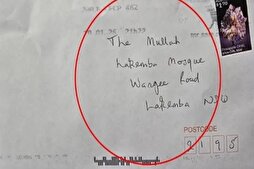 The Mullah
Lakemba Mosque
Wangee Road
Lakemba NSW
POSTCODE
2195